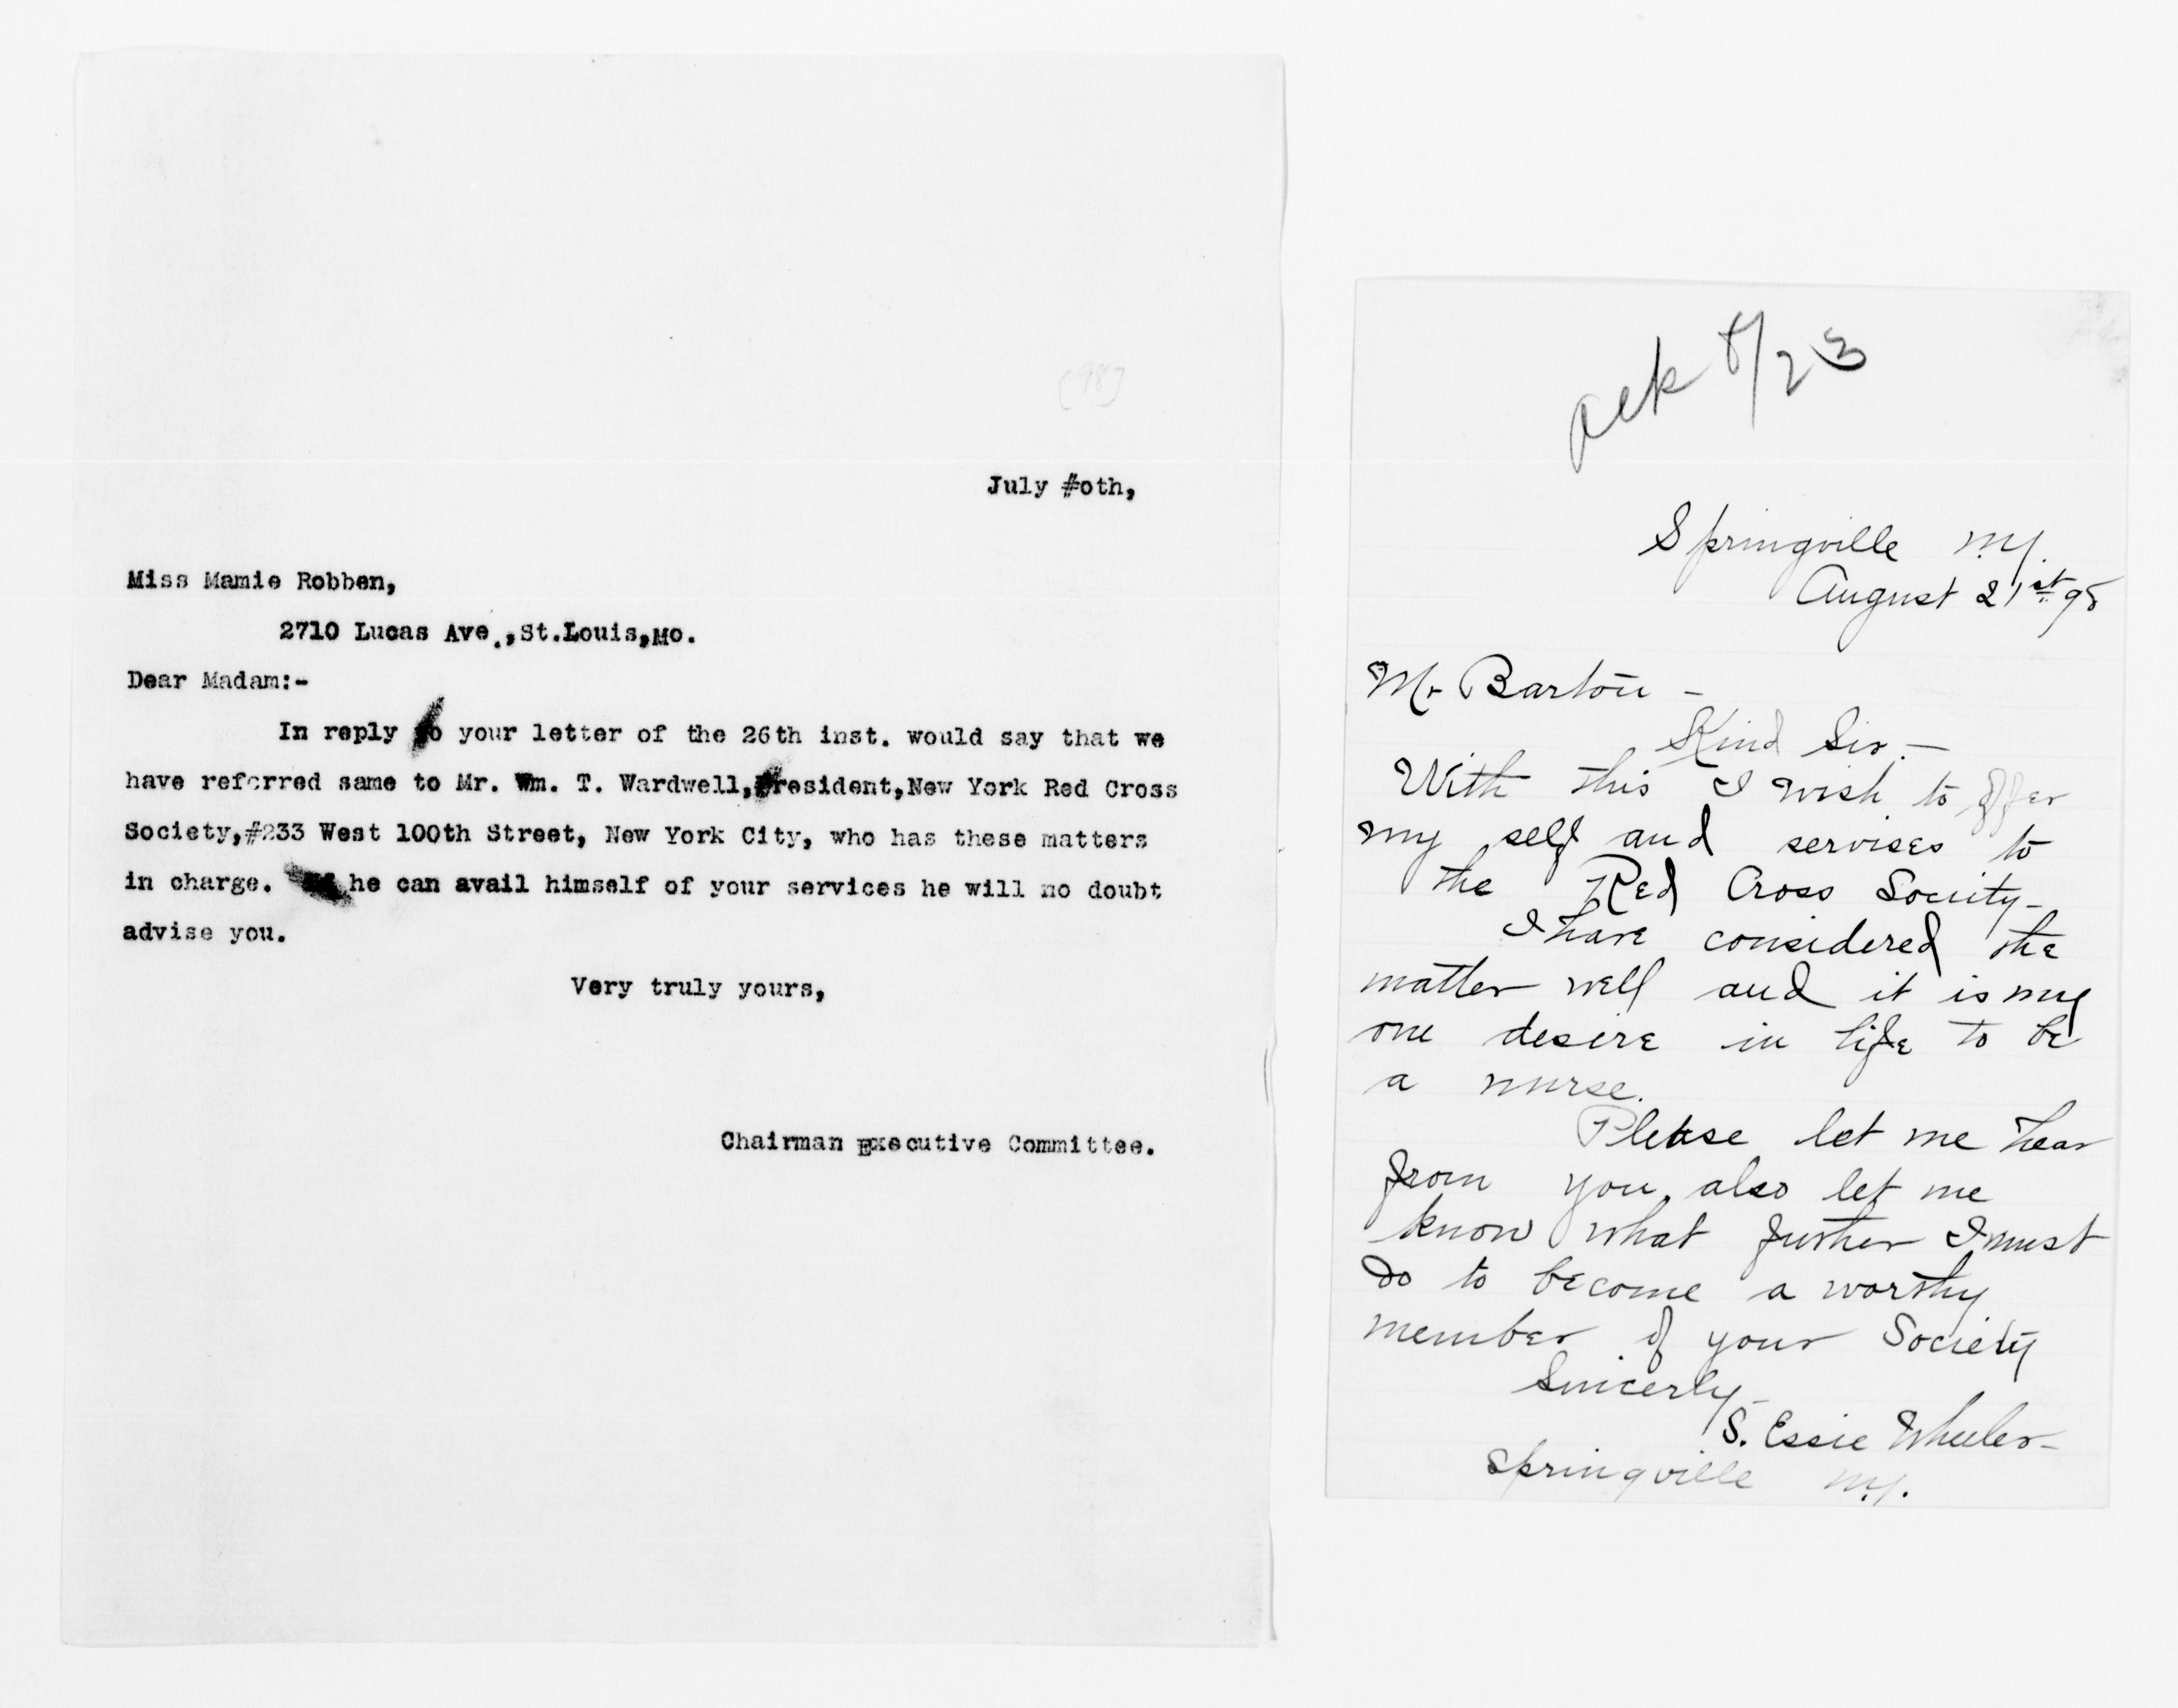 [98]
July #oth,
Miss Mamie Robben,
2710 Lucas Ave.,St.Louis,Mo.
Dear Madam:-
In reply to your letter of the 26th inst. would say that we
have referred same to Mr. Wm. T. Wardwell,President,New York Red Cross
Society,#233 West 100th Street, New York City, who has these matters
in charge. If he can avail himself of your services he will no doubt
advise you.
Very truly yours,
Chairman Executive Committee.
ack 8/23
Springville N.Y.
August 21st 98
Mr Barton -
Kind Sir. -
With this I wish to offer
my self and servises to
the Red Cross Society -
I have considered the
matter well and it is my
one desire in life to be
a nurse.
Please let me hear
from you, also let me
know what further I must
do to become a worthy
member of your Society
Sincerly -
S. Essie Wheeler -
Springville N.Y.